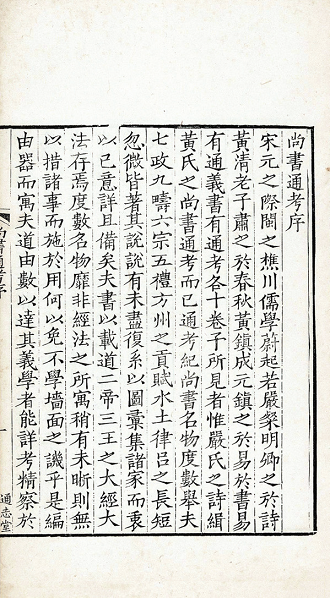 尚書通考序
宋元之際閩之樵川儒學蔚起若嚴粲明卿之於詩
黃清老子肅之於春秋黃鎮成元鎮之於易於書易
有通義書有通考各十卷子所見者惟嚴氏之詩緝
黃氏之尚書通考而已通考紀尚書名物度數舉夫
七政九疇六宗五禮方州之貢賦水土律呂之長短
忽微皆著其說說有未盡復系以圖彙集諸家而衷
以已意詳且備矣夫書以載道二帝三王之大經大
法存焉度數名物靡非經法之所寓稍有未晰則無
以措諸事而施於用何以免不學墻面之譏乎是編
由器而寓夫道由數以達其義學者能詳考精察於
尚書通考序
一
通志堂